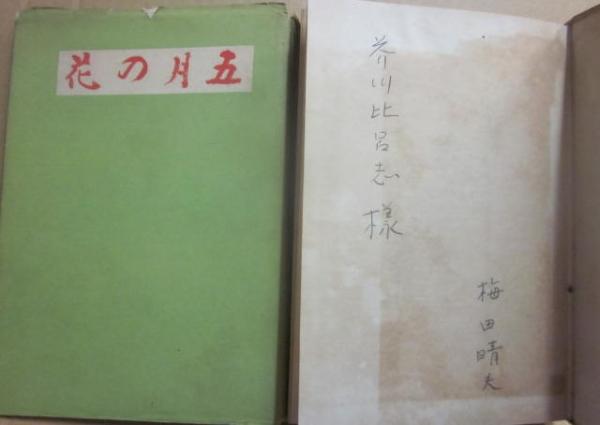 五月の花
芥川比呂志様
梅田晴夫